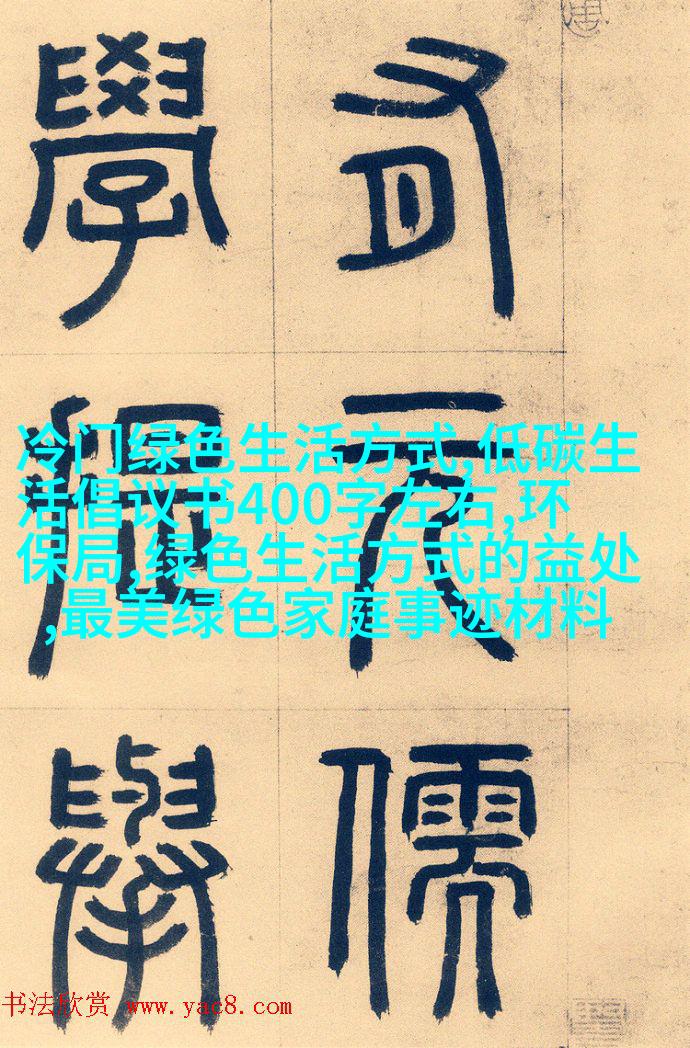 有元儒
學提舉
冷门绿色生活方式,低碳生
活倡议书400字左右,环
保局,绿色生活方式的益处
,最美绿色家庭事迹材料
书法欣赏 www.yac8.com